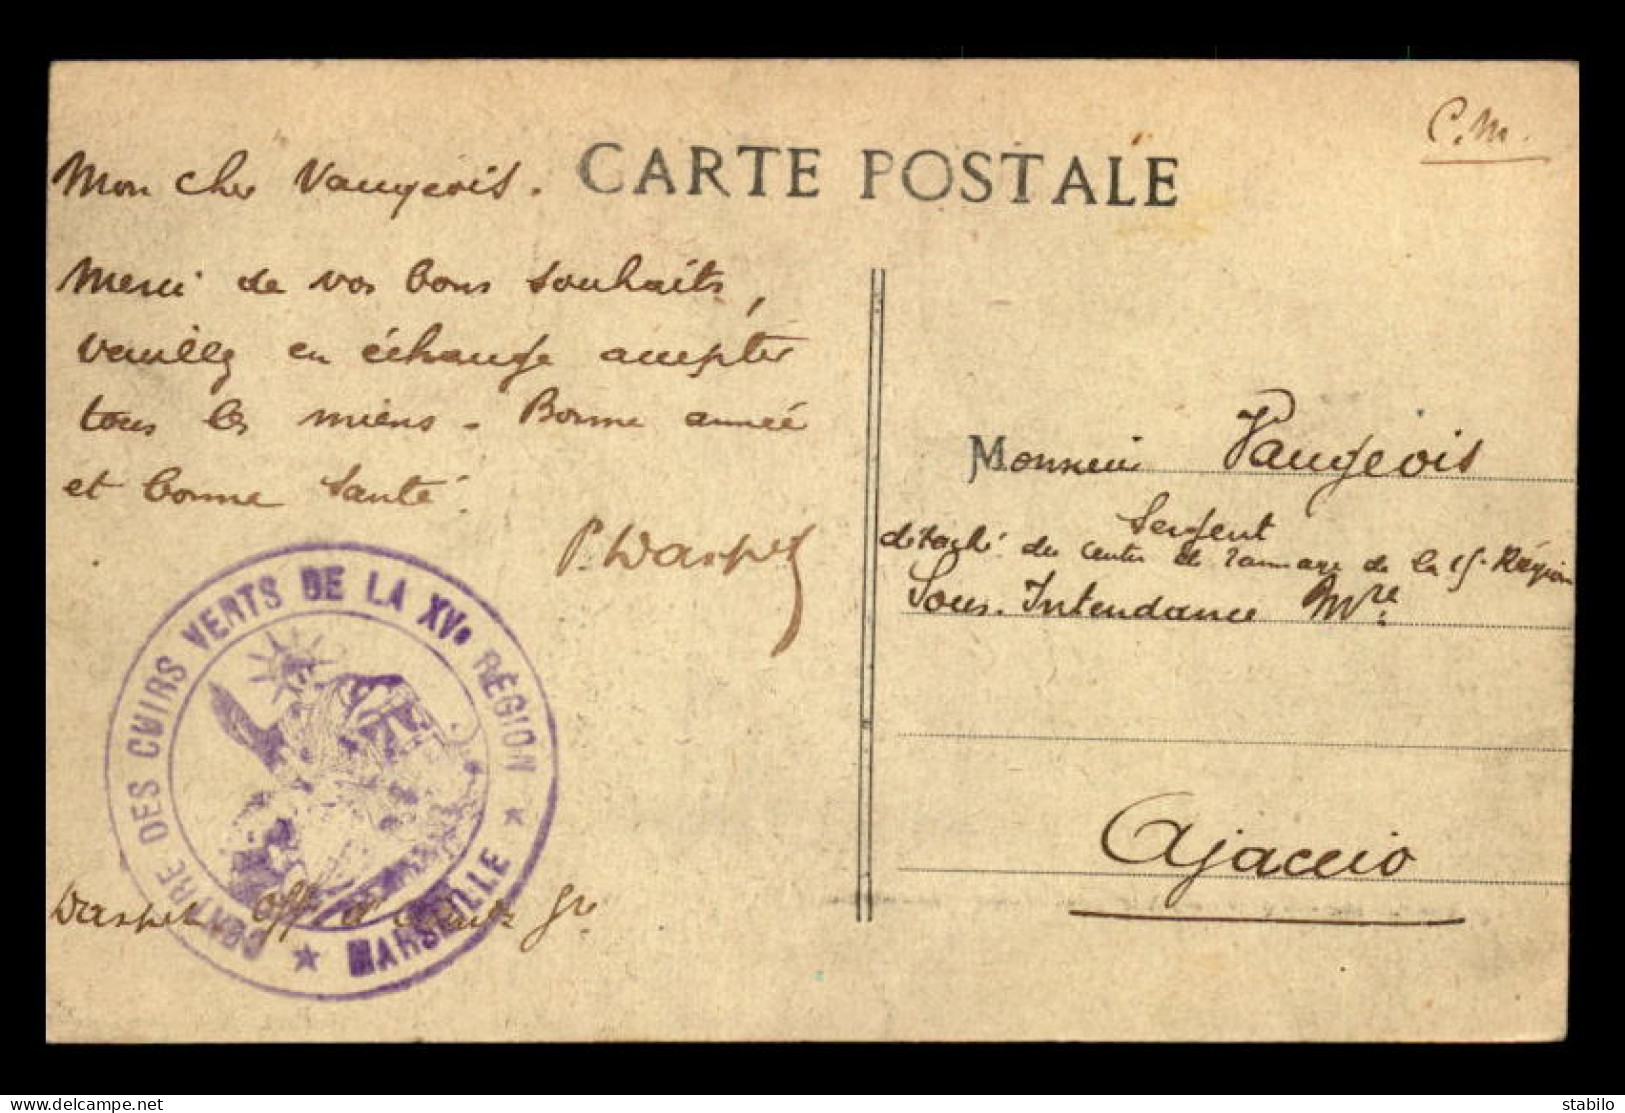 C.M.
CARTE POSTALE
Mon cher Vaugeois.
Merci de vos bons souhaits,
veuillez en échange accepter
tous les miens. Bonne année
et bonne santé.
P. Waspet
CENTRE DES CUIRS VERTS DE LA XVe RÉGION
★ MARSEILLE ★
Waspet off d'
Monsieur Vaugeois
Sergent
détaché du centre de tannage de la 15e Région
Sous-Intendance Mre
Ajaccio
© delcampe.net
stabilo